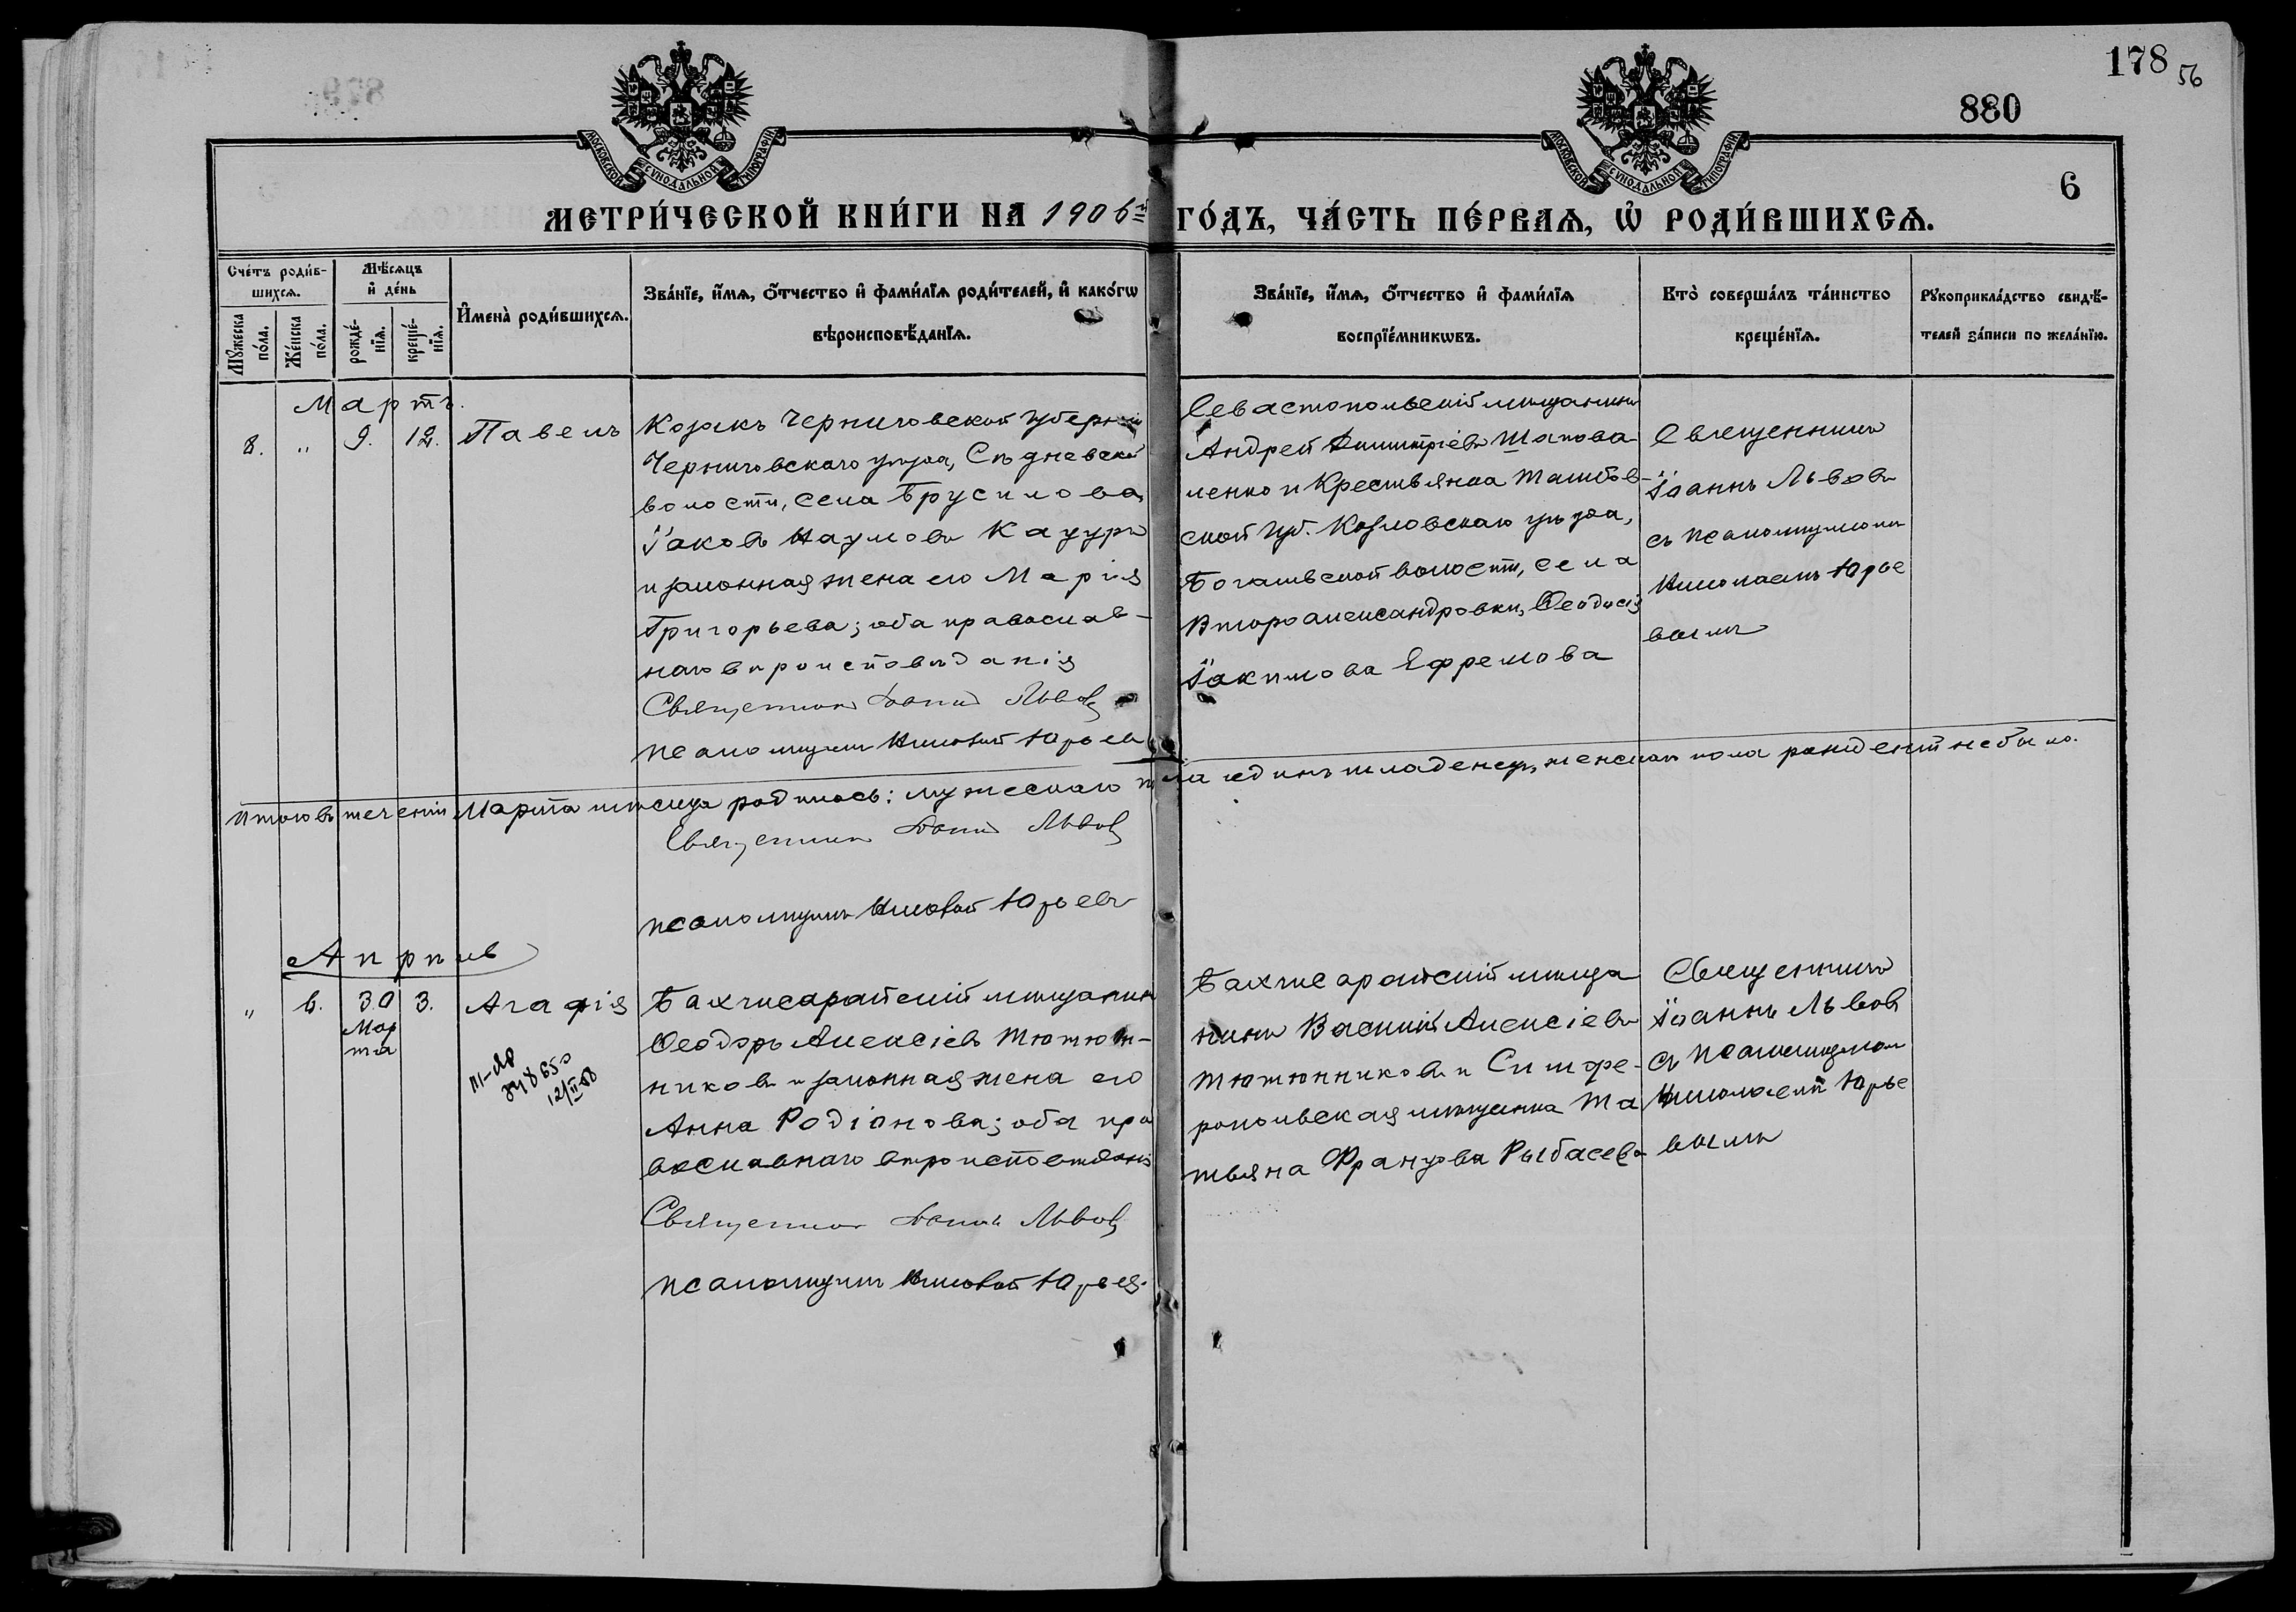 178 56
880
6
МОСКОВСКОЙ СУНОДАЛЬНОЙ ТИПОГРАФІИ
МОСКОВСКОЙ СУНОДАЛЬНОЙ ТИПОГРАФІИ
МЕТРИ́ЧЕСКОЙ КНИ́ГИ НА 1906й ГО́ДЪ, ЧА́СТЬ ПЕ́РВАѦ, Ѡ҆ РОДИ́ВШИХСѦ.
Сче́тъ роди́в-
шихсѧ.
Мꙋ́жеска по́ла.
Же́нска по́ла.
Мѣ́сѧцъ
и҆ де́нь
рожде́-
нїѧ.
креще́-
нїѧ.
И҆мена̀ роди́вшихсѧ.
Зва́нїе, и҆́мѧ, ѻ҆́тчество и҆ фами́лїѧ роди́телей, и҆ како́гѡ
вѣроисповѣ́данїѧ.
Зва́нїе, и҆́мѧ, ѻ҆́тчество и҆ фами́лїѧ
воспрїе́мникѡвъ.
Кто̀ соверша́лъ та́инство
креще́нїѧ.
Рꙋкоприкла́дство свидѣ́-
телей за́писи по жела́нїю.
Мартъ.
8. " 9. 12. Павелъ
Козакъ Черниговской губерніи
Черниговскаго уѣзда, Сѣдневской
волости, села Брусилова,
Іаковъ Наумовъ Кацуръ
и законная жена его Марія
Григорьева; оба православ-
наго вѣроисповѣданія
Священникъ Іоаннъ Львовъ
Псаломщикъ Николай Юрьевъ
Севастопольскій мѣщанинъ
Андрей Димитріевъ Шапова-
ленко и Крестьянка Тамбов-
ской губ. Козловскаго уѣзда,
волости, села
Второалександровки, Ѳеодосія
Іакимова Ефремова
Священникъ
Іоаннъ Львовъ
съ псаломщикомъ
Николаемъ Юрье
вымъ
Итого въ теченіи Марта мѣсяца родилось: мужескаго пола единъ младенецъ, женскаго пола рожденій не было.
Священникъ Іоаннъ Львовъ
псаломщикъ Николай Юрьевъ
Апрѣль
" 6. 30 3. Агафія
Мар
та
III-АЮ
848650
12/II-58
Бахчисарайскій мѣщанинъ
Ѳеодоръ Алексіевъ Тютюн-
никовъ и законная жена его
Анна Родіонова; оба пра
вославнаго вѣроисповѣданія
Священникъ Іоаннъ Львовъ
псаломщикъ Николай Юрьевъ.
Бахчисарайскій мѣща
нинъ Василій Алексіевъ
Тютюнниковъ и Симфе-
ропольская мѣщанка Та
тьяна Францова Рыбасева
Священникъ
Іоаннъ Львовъ
съ псаломщикомъ
Николаемъ Юрье
вымъ